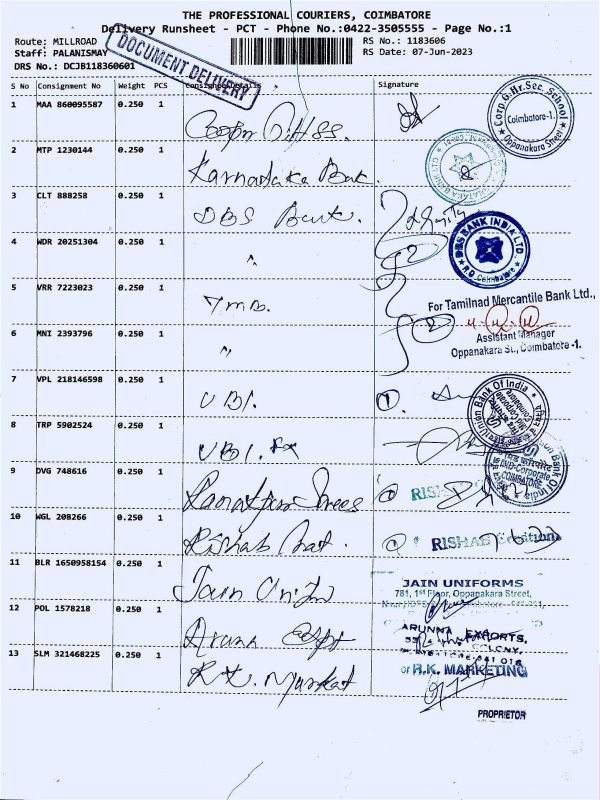 THE PROFESSIONAL COURIERS, COIMBATORE
Delivery Runsheet - PCT - Phone No.:0422-3505555 - Page No.:1
Route: MILLROAD
RS No.: 1183606
Staff: PALANISMAY
RS Date: 07-Jun-2023
DRS No.: DCJB118360601
DOCUMENT DELIVERY
S No Consignment No Weight PCS Consignee Details Signature
1 MAA 860095587 0.250 1
Corp G.Hr.Sec. School
Coimbatore-1.
Oppanakara Street
2 MTP 1230144 0.250 1 Karnataka Bank.
3 CLT 888258 0.250 1 DBS Bank.
DBS BANK INDIA LTD.
R.O. Coimbatore
4 WDR 20251304 0.250 1 "
5 VRR 7223023 0.250 1 T.M.B.
For Tamilnad Mercantile Bank Ltd.,
Assistant Manager
Oppanakara St., Coimbatore -1.
6 MNI 2393796 0.250 1 "
7 VPL 218146598 0.250 1 UBI.
Union Bank Of India
8 TRP 5902524 0.250 1 UBI.
Union Bank Of India
COIMBATORE
9 DVG 748616 0.250 1
RISH
10 WGL 208266 0.250 1 Rishab
RISHAB
11 BLR 1650958154 0.250 1 Jain
JAIN UNIFORMS
781, 1st Floor, Oppanakara Street,
12 POL 1578218 0.250 1 Aruna
ARUNNA EXPORTS,
COLONY,
13 SLM 321468225 0.250 1 R.K. Market
or R.K. MARKETING
PROPRIETOR